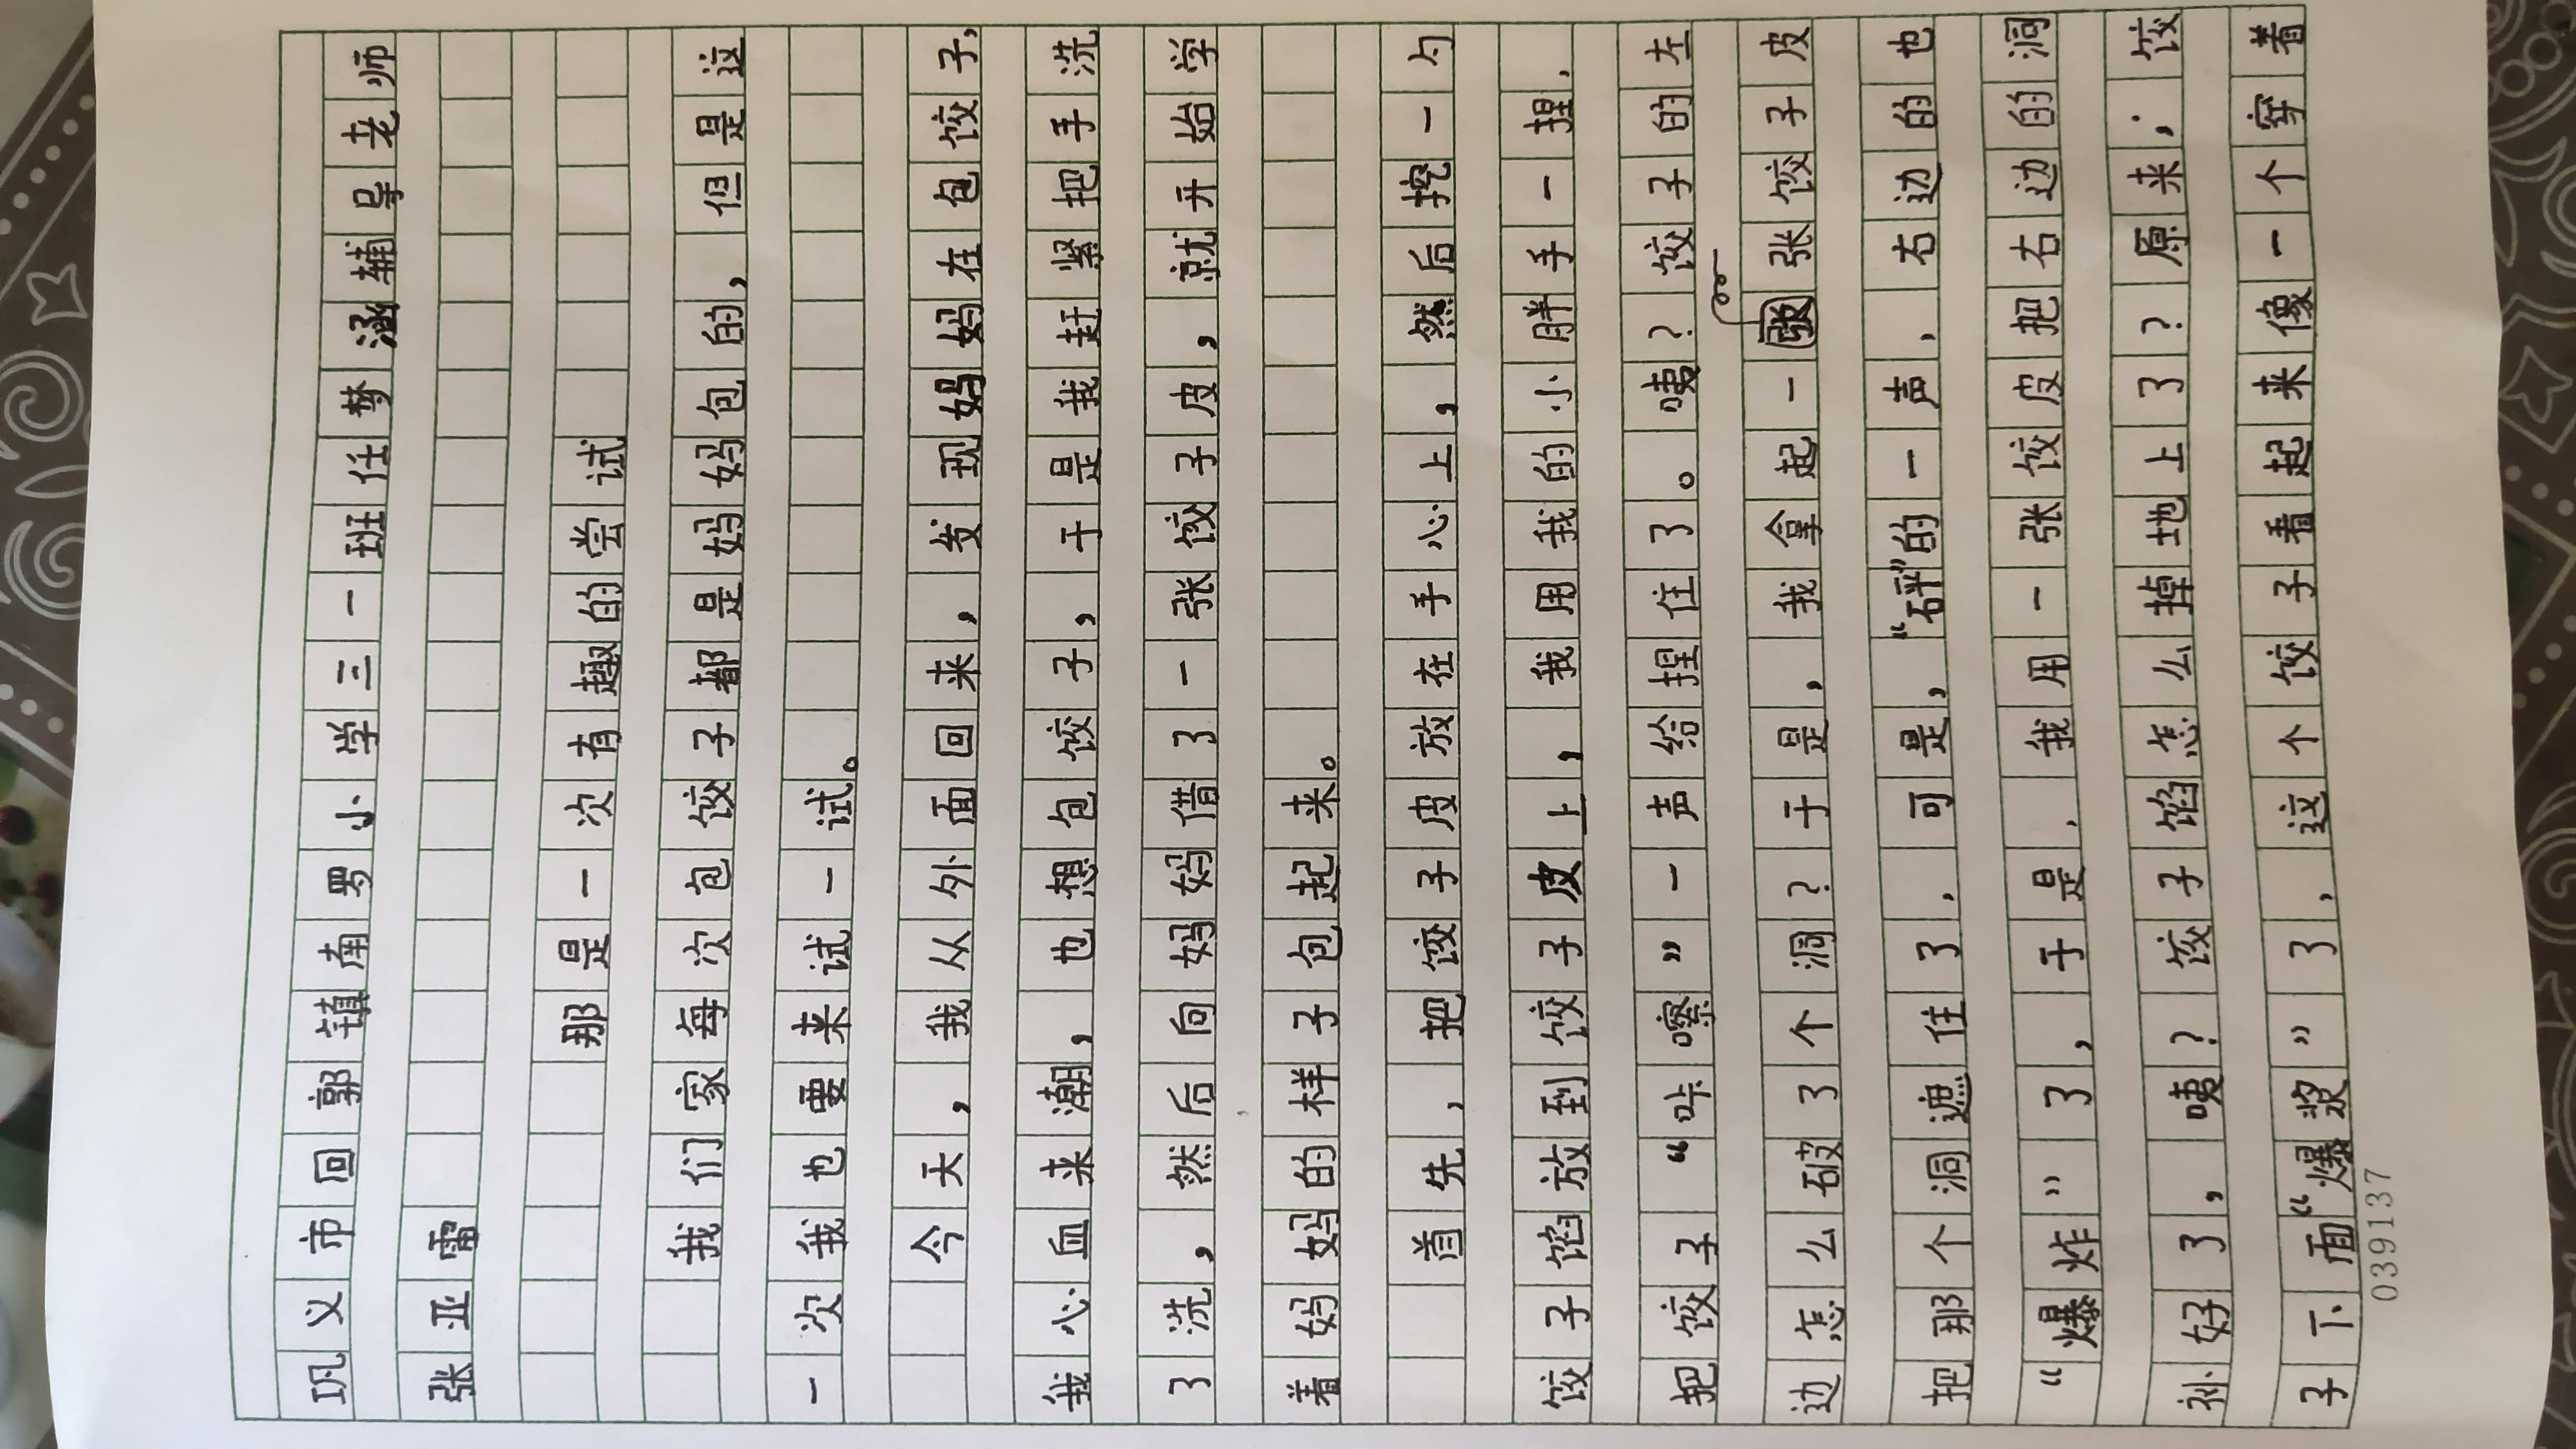 巩义市回郭镇南罗小学三一班任梦涵辅导老师
张亚雷
那是一次有趣的尝试
我们家每次包饺子都是妈妈包的，但是这
一次我也要来试一试。
今天，我从外面回来，发现妈妈在包饺子，
我心血来潮，也想包饺子，于是我赶紧把手洗
了洗，然后向妈妈借了一张饺子皮，就开始学
着妈妈的样子包起来。
首先，把饺子皮放在手心上，然后挖一勺
饺子馅放到饺子皮上，我用我的小胖手一捏，
把饺子“咔嚓”一声给捏住了。咦？饺子的左
边怎么破了个洞？于是，我拿起一张饺子皮
把那个洞遮住了，可是，“砰”的一声，右边的也
“爆炸”了，于是，我用一张饺皮把右边的洞
补好了，咦？饺子馅怎么掉地上了？原来；饺
子下面“爆浆”了，这个饺子看起来像一个穿着
039137